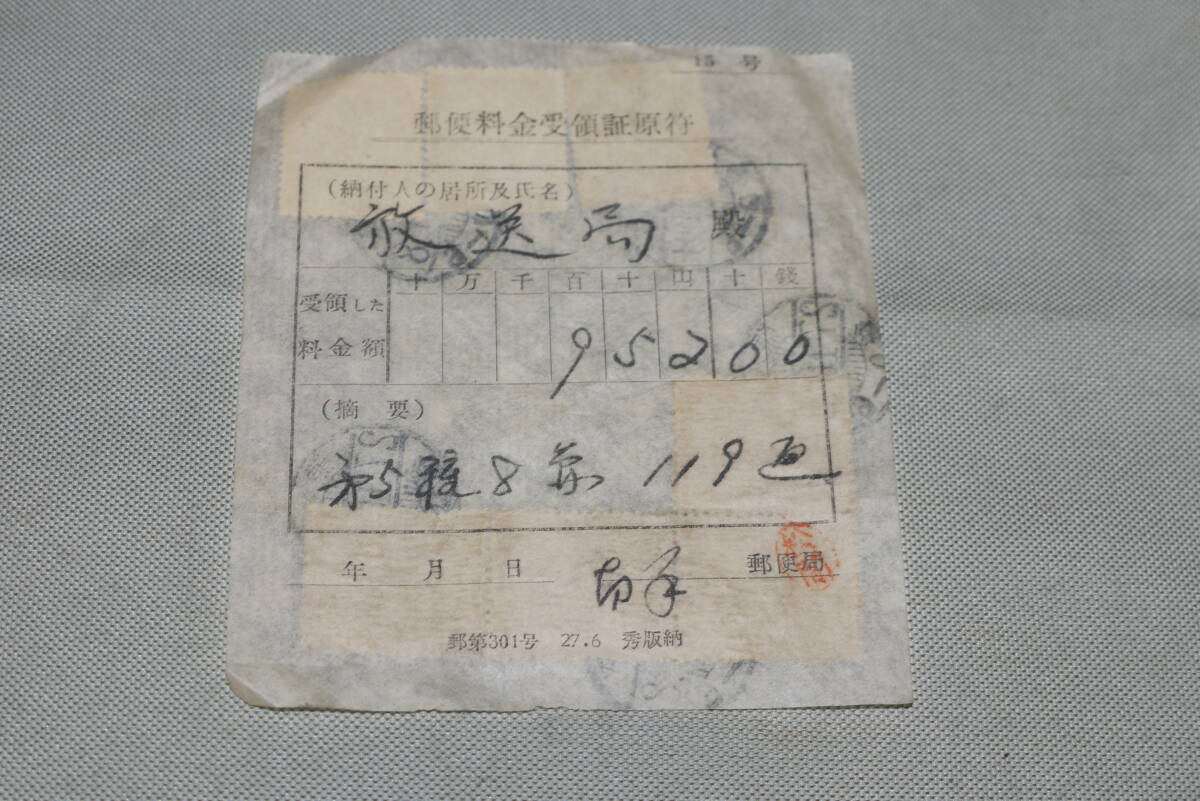 15 号
郵便料金受領証原符
(納付人の居所及氏名)
放送局 殿
十 万 千 百 十 円 十 銭
受領した
料金額
95200
(摘 要)
第5種 8 119 通
年 月 日 郵便局
郵第301号 27.6 秀版納